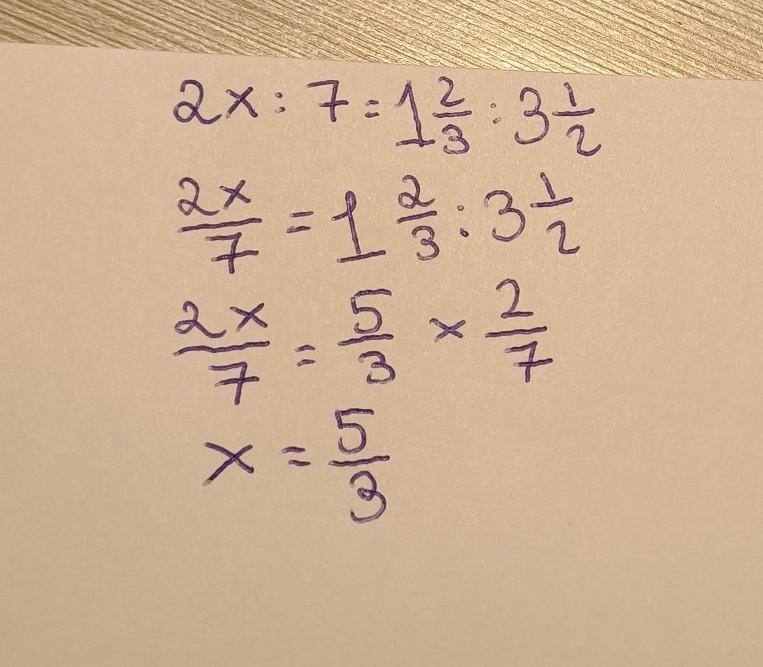 2x : 7 = 1 2/3 : 3 1/2
2x/7 = 1 2/3 : 3 1/2
2x/7 = 5/3 × 2/7
x = 5/3